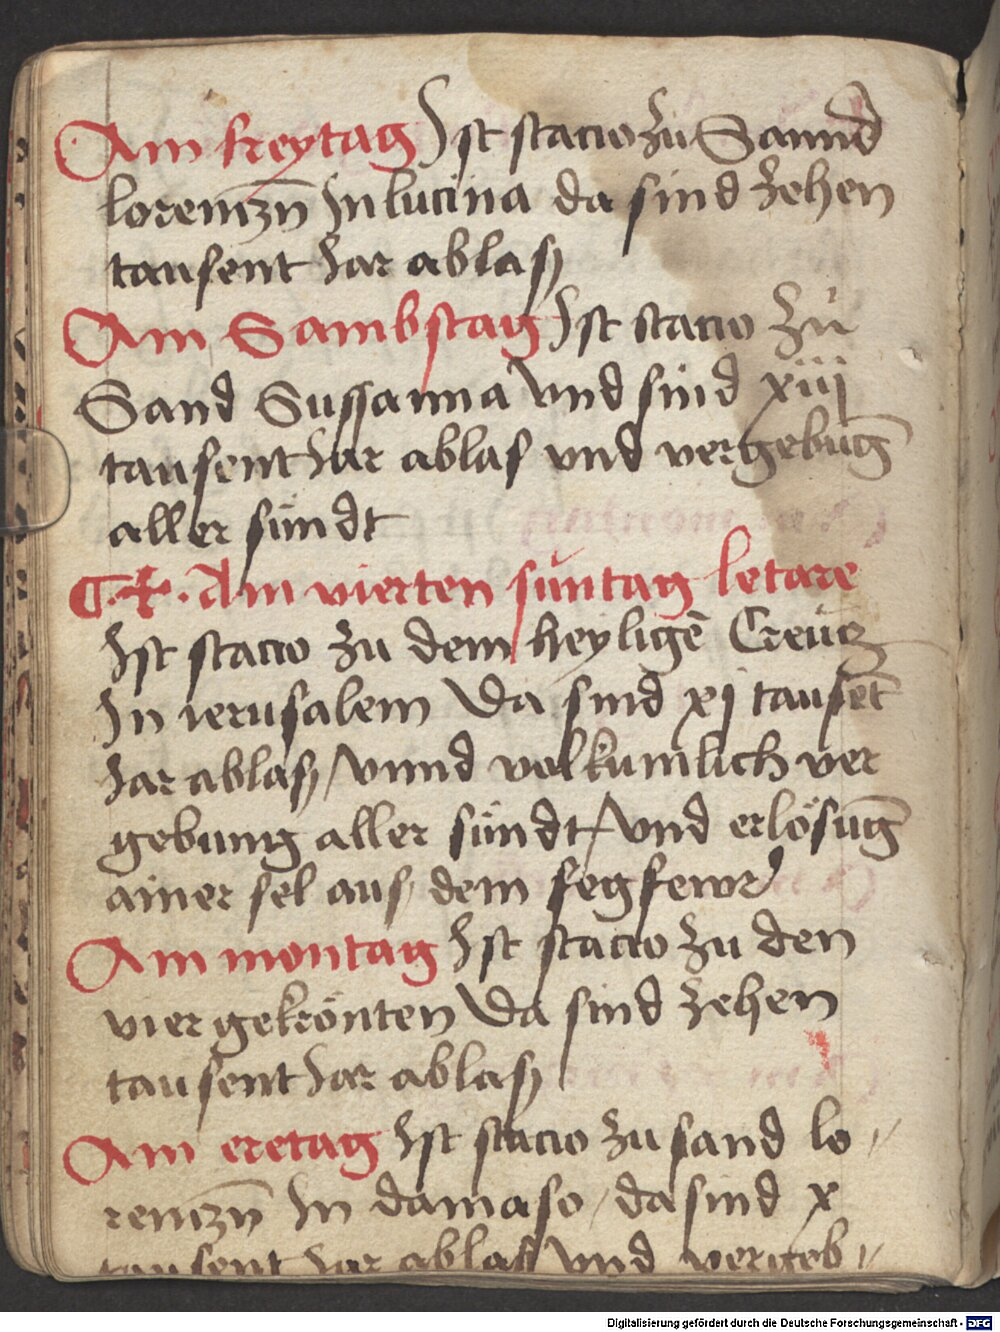 Am freytag Ist stacio zů Sannd
lorenczn In lucina da sind zehen
tausent Jar ablas
Am Sambstag Ist stacio zů
Sand Sussanna Vnd sind xiij
tausent Jar ablas vnd vergebūg
aller sündt
C ✝ . Am vierten suntag letare
Ist stacio zu dem heyligē Creücz
In ierusalem Da sind xj tausēt
Jar ablas / vnnd volkumlich ver
gebung aller sündt / vnd erlösūg
ainer sel aus dem fegfewr
Am montag Ist stacio zu den
vier gekrönten Da sind zehen
tausent Jar ablas
Am eretag Ist stacio zu sand lo〃
renczn In damaso / da sind x
tausent Jar ablas vnd vergeb〃
Digitalisierung gefördert durch die Deutsche Forschungsgemeinschaft - DFG